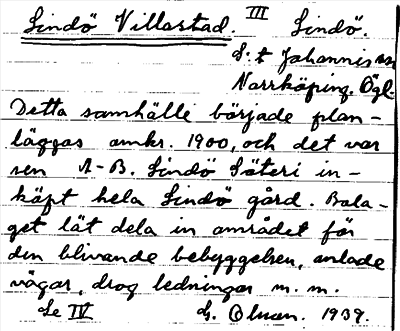 Lindö Villastad. III Lindö.
S:t Johannis sn
Norrköping. Ögl.
Detta samhälle började plan-
läggas omkr. 1900, och det var
sen A-B. Lindö Säteri in-
köpt hela Lindö gård. Bola-
get lät dela in området för
den blivande bebyggelsen, anlade
vägar, drog ledningar m. m.
Se IV G. Olsson. 1937.